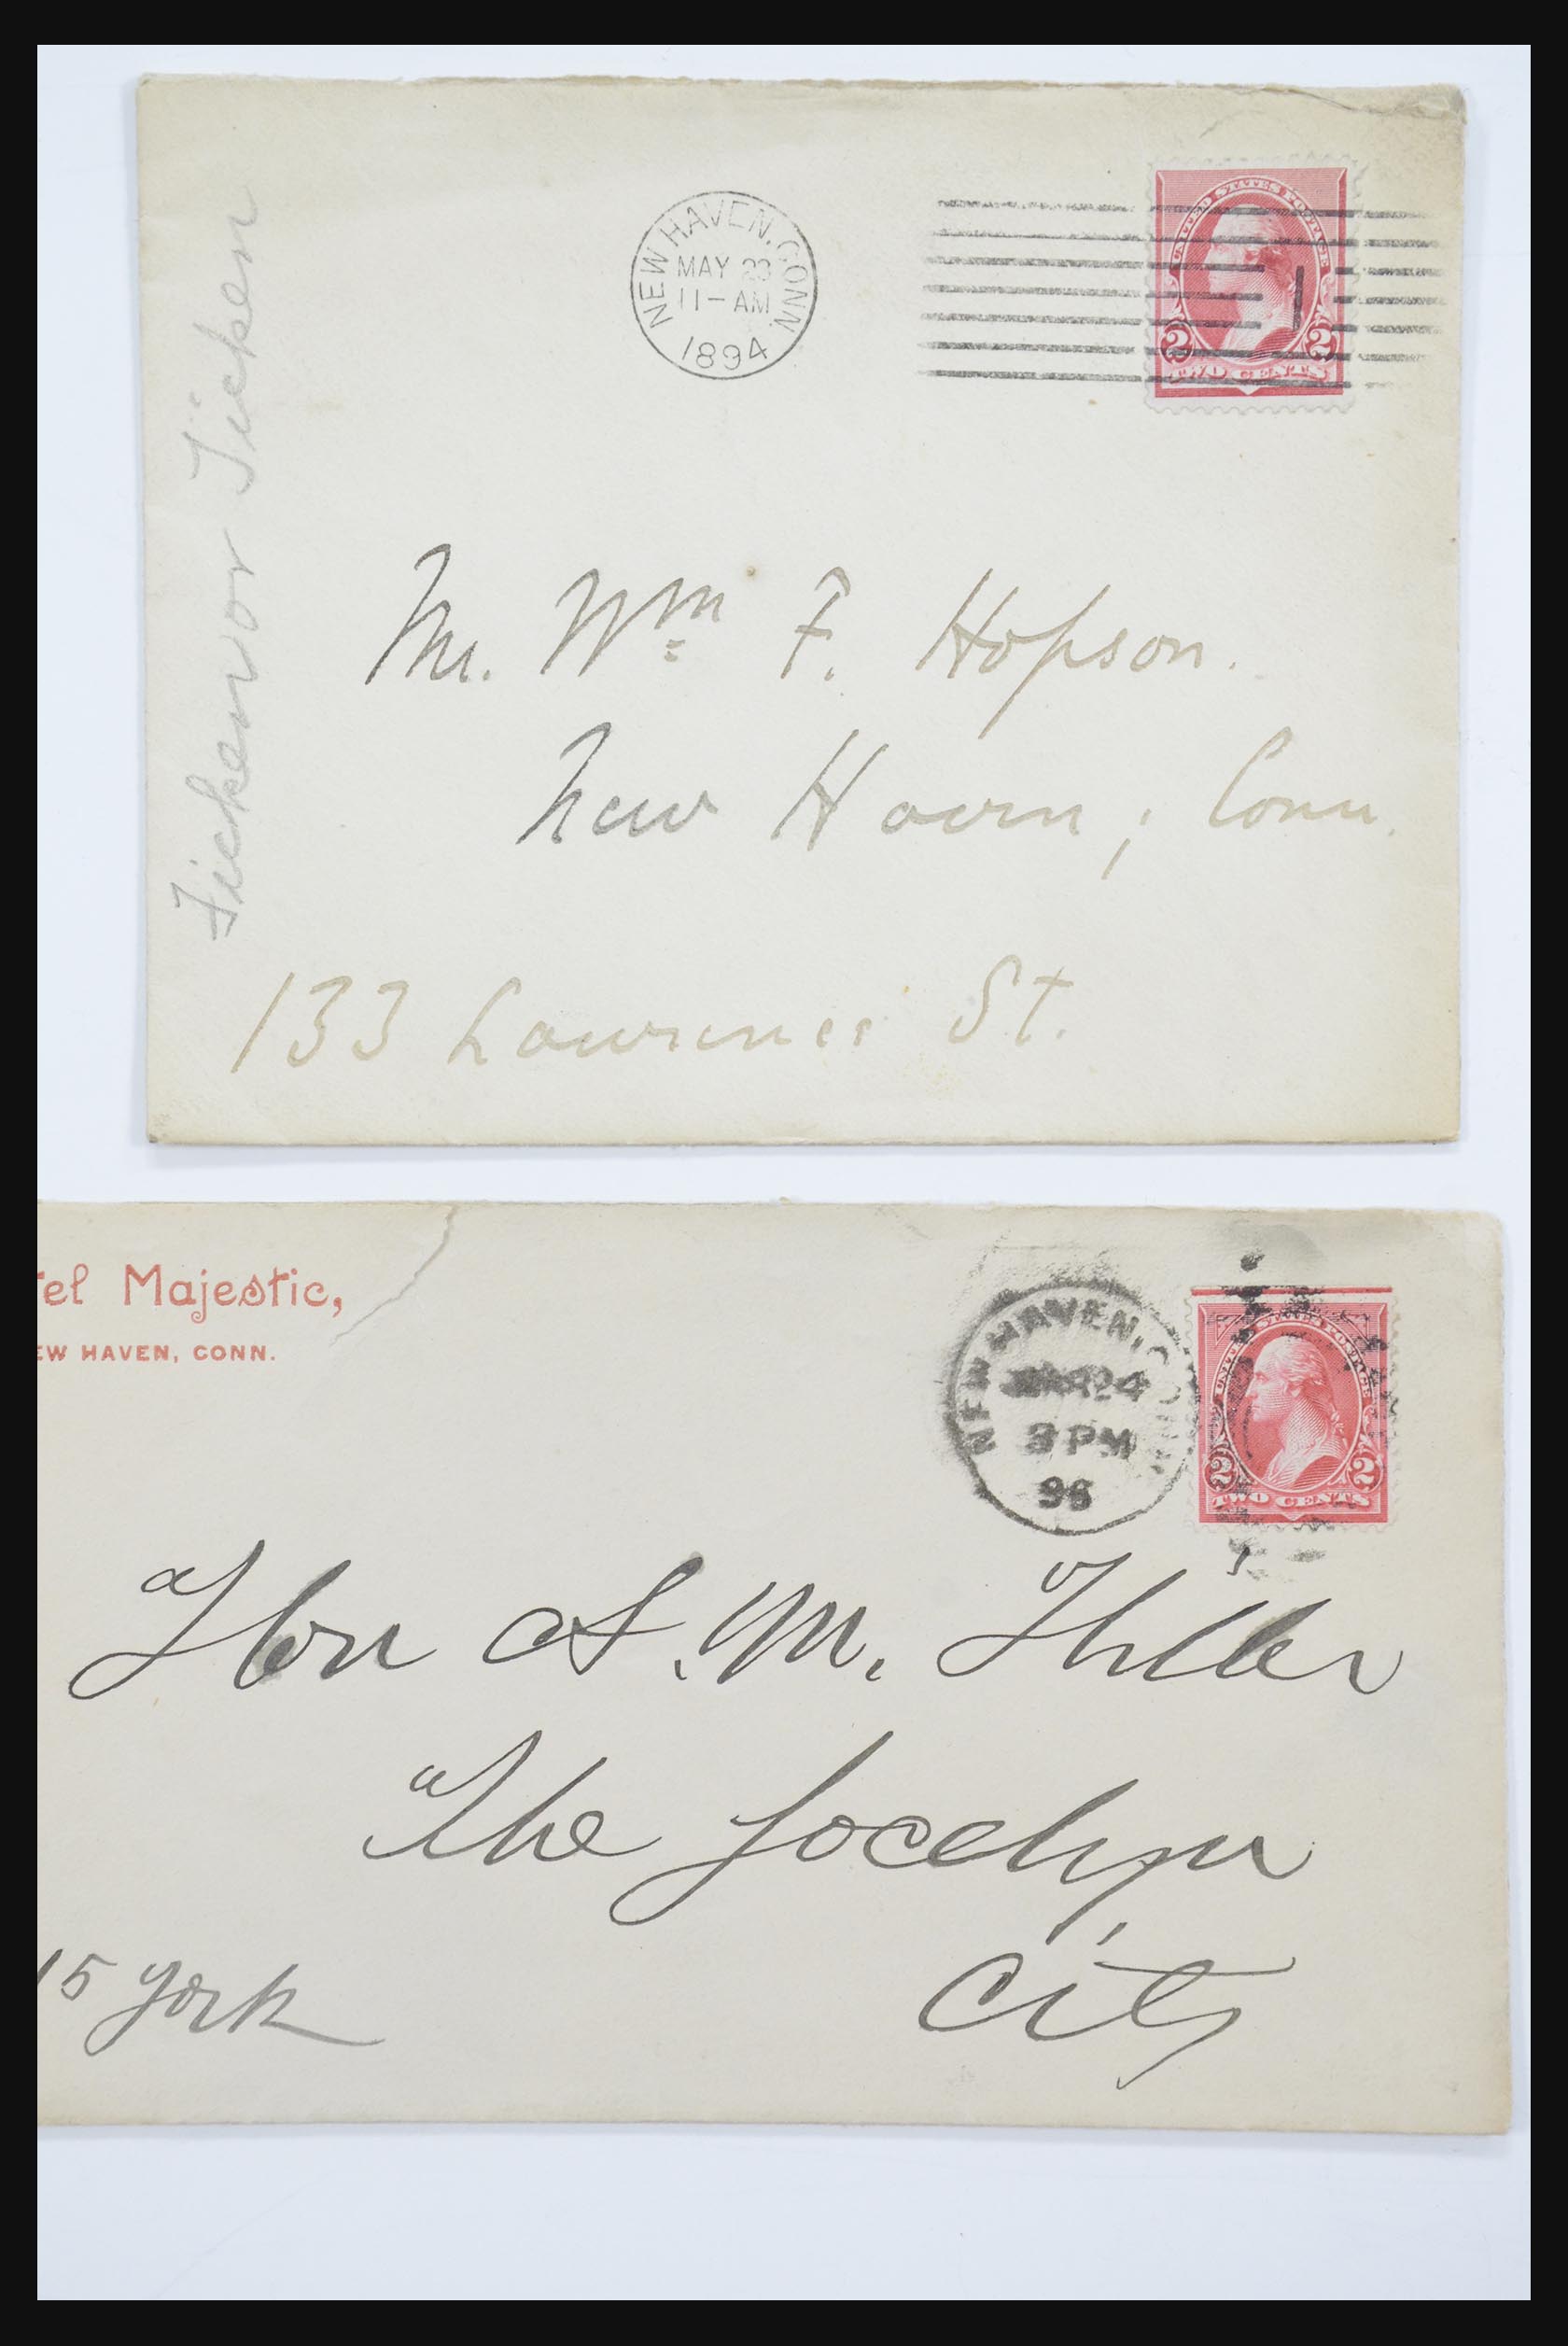 NEW HAVEN, CONN.
MAY 23
11-AM
1894
UNITED STATES POSTAGE
2 2
TWO CENTS
Mr. Wm F. Hopson.
New Haven, Conn.
133 Lawrence St.
tel Majestic,
EW HAVEN, CONN.
NEW HAVEN, CONN.
24
3 PM
96
UNITED STATES POSTAGE
2 2
TWO CENTS
Hon S. M.
The Jocelyn
City
15 York